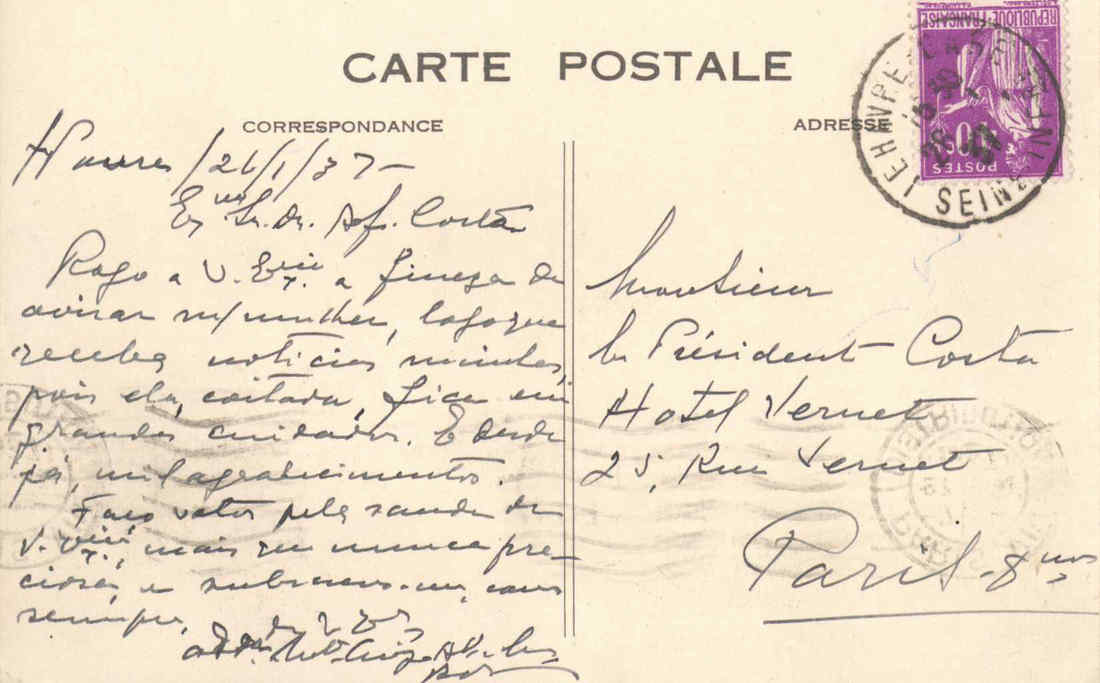 CARTE POSTALE
CORRESPONDANCE
ADRESSE
RÉPUBLIQUE FRANÇAISE
POSTES
LE HAVRE
SEINE
26/1/37-
Exmo Sr. Dr. Af. Costa
Rogo a V. Excia a fineza de
avisar m/ mulher, logo que
receba noticias minhas,
pois ela, coitada, fica em
grandes cuidados. E desde
já, mil agradecimentos.
Faço votos pela saude de
V. Excia, mais que nunca pre-
ciosa, e subscrevo-me, como
sempre,
de V. Ex
Monsieur
le Président Costa
Hotel Vernet
25, Rue Vernet
Paris-8